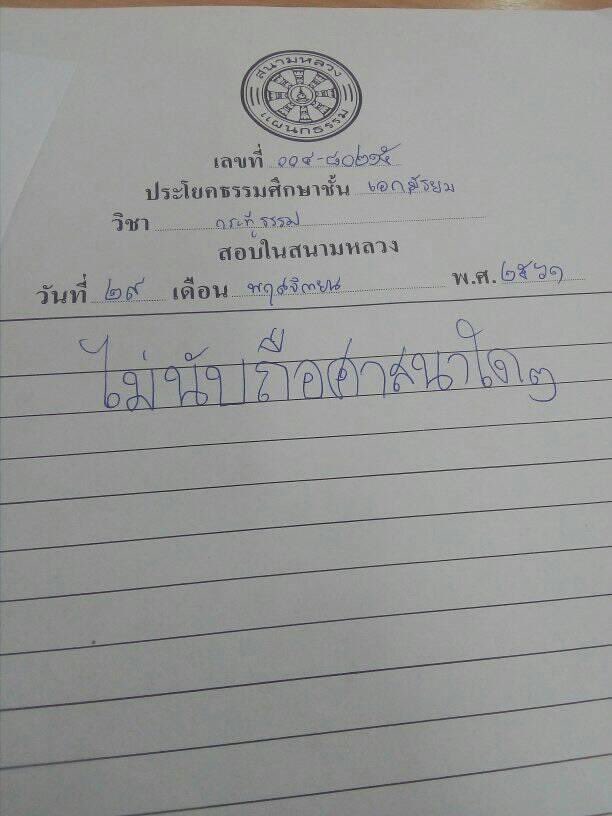 สนามหลวง
แผนกธรรม
เลขที่ ๐๐๔-๘๐๒๑๕
ประโยคธรรมศึกษาชั้น เอก มัธยม
วิชา กระทู้ธรรม
สอบในสนามหลวง
วันที่ ๒๙ เดือน พฤศจิกายน พ.ศ. ๒๕๖๑
ไม่นับถือศาสนาใดๆ